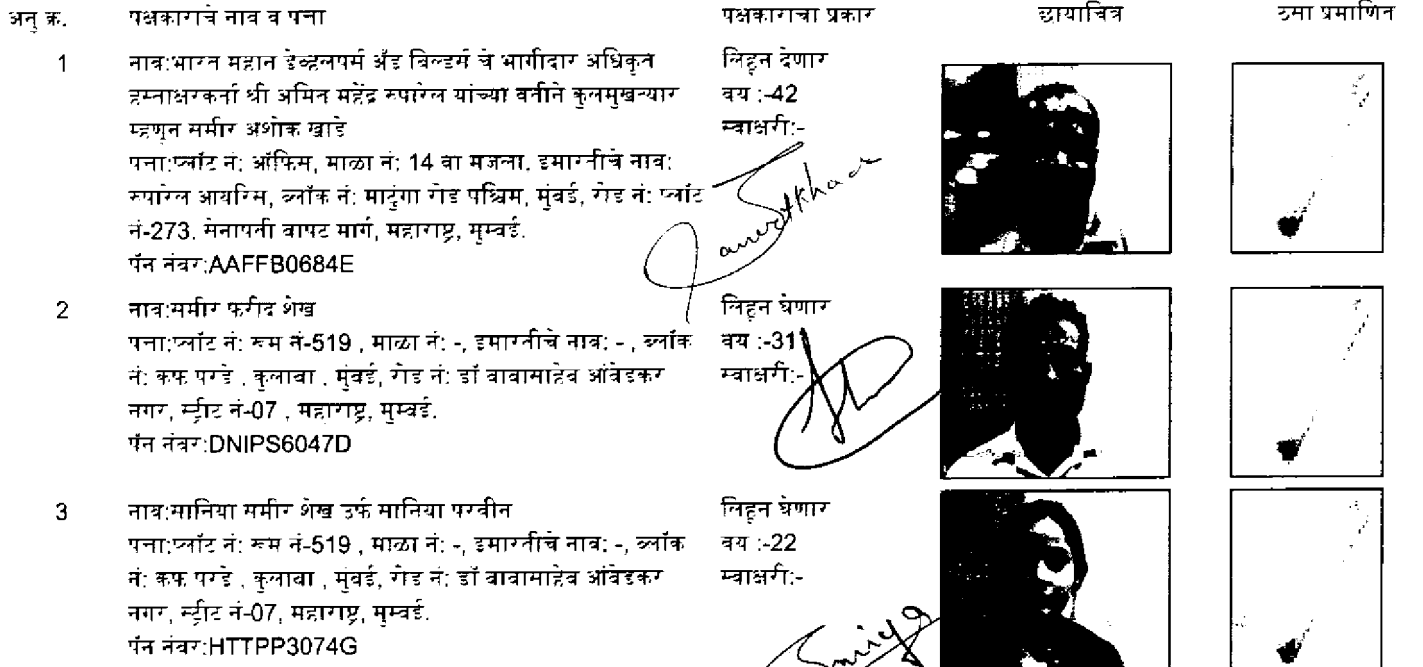 अनु क्र. पक्षकाराचे नाव व पत्ता पक्षकाराचा प्रकार छायाचित्र ठसा प्रमाणित
1 नाव:भारत महान डेव्हलपर्स अँड बिल्डर्स चे भागीदार अधिकृत लिहून देणार
हस्ताक्षरकर्ता श्री अमित महेंद्र रुपारेल यांच्या वतीने कुलमुखत्यार वय :-42
म्हणून समीर अशोक खाडे स्वाक्षरी:-
पत्ता:प्लॉट नं: ऑफिस, माळा नं: 14 वा मजला, इमारतीचे नाव:
रुपारेल आयरिस, ब्लॉक नं: माटुंगा रोड पश्चिम, मुंबई, रोड नं: प्लॉट
नं-273, सेनापती बापट मार्ग, महाराष्ट्र, मुम्बई.
पॅन नंबर:AAFFB0684E
2 नाव:समीर फरीद शेख लिहून घेणार
पत्ता:प्लॉट नं: रूम नं-519 , माळा नं: -, इमारतीचे नाव: - , ब्लॉक वय :-31
नं: कफ परेड , कुलाबा , मुंबई, रोड नं: डॉ बाबासाहेब आंबेडकर स्वाक्षरी:-
नगर, स्ट्रीट नं-07 , महाराष्ट्र, मुम्बई.
पॅन नंबर:DNIPS6047D
3 नाव:सानिया समीर शेख उर्फ सानिया परवीन लिहून घेणार
पत्ता:प्लॉट नं: रूम नं-519 , माळा नं: -, इमारतीचे नाव: -, ब्लॉक वय :-22
नं: कफ परेड , कुलाबा , मुंबई, रोड नं: डॉ बाबासाहेब आंबेडकर स्वाक्षरी:-
नगर, स्ट्रीट नं-07, महाराष्ट्र, मुम्बई.
पॅन नंबर:HTTPP3074G